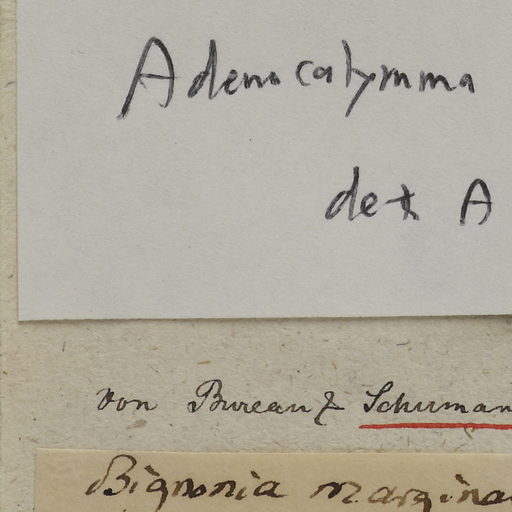 Adenocalymma
det A
von Bureau & Schuman
Bignonia margina